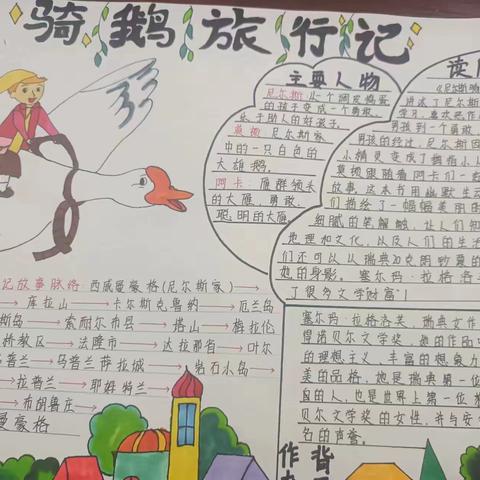 骑鹅旅行记
主要人物
尼尔斯 从一个调皮捣蛋
的孩子变成一个勇敢、
乐于助人的好孩子。
莫顿 尼尔斯家
中的一只白色的
大雄鹅。
阿卡：雁群领头
的大雁，勇敢、
聪明的大雁。
读
《尼尔斯
讲述了尼尔斯
学习，喜欢恶作
男孩到一个勇敢
男孩的经过，尼尔斯因
小精灵变成了拇指小人
莫顿跟随着阿卡们一起
故事，这本书用幽默生动
们描绘了一幅幅美丽的
细腻的笔触，让人们知
地理和文化，以及人们的生活
们还可以从瑞典20克朗钞票的
她的身影。塞尔玛·拉格洛
了很多文学财富！
记故事脉络 西威曼豪格(尼尔斯家)
库拉山 卡尔斯克鲁纳 厄兰岛
斯岛 索耐尔布县 塔山 梅拉伦
桥教区 法隆市 达拉那省 叶尔
普兰 马普兰萨拉城 岩石小岛
拉普兰 耶姆特兰
布朗鲁庄
曼豪格
塞尔玛·拉格洛芙，瑞典女作
得诺贝尔文学奖，她的作品中
的理想主义、丰富的想象力
美的品格，她是瑞典第一位
自的人，也是世界上第一位
贝尔文学奖的女性，并与安
名的声誉。
作
背